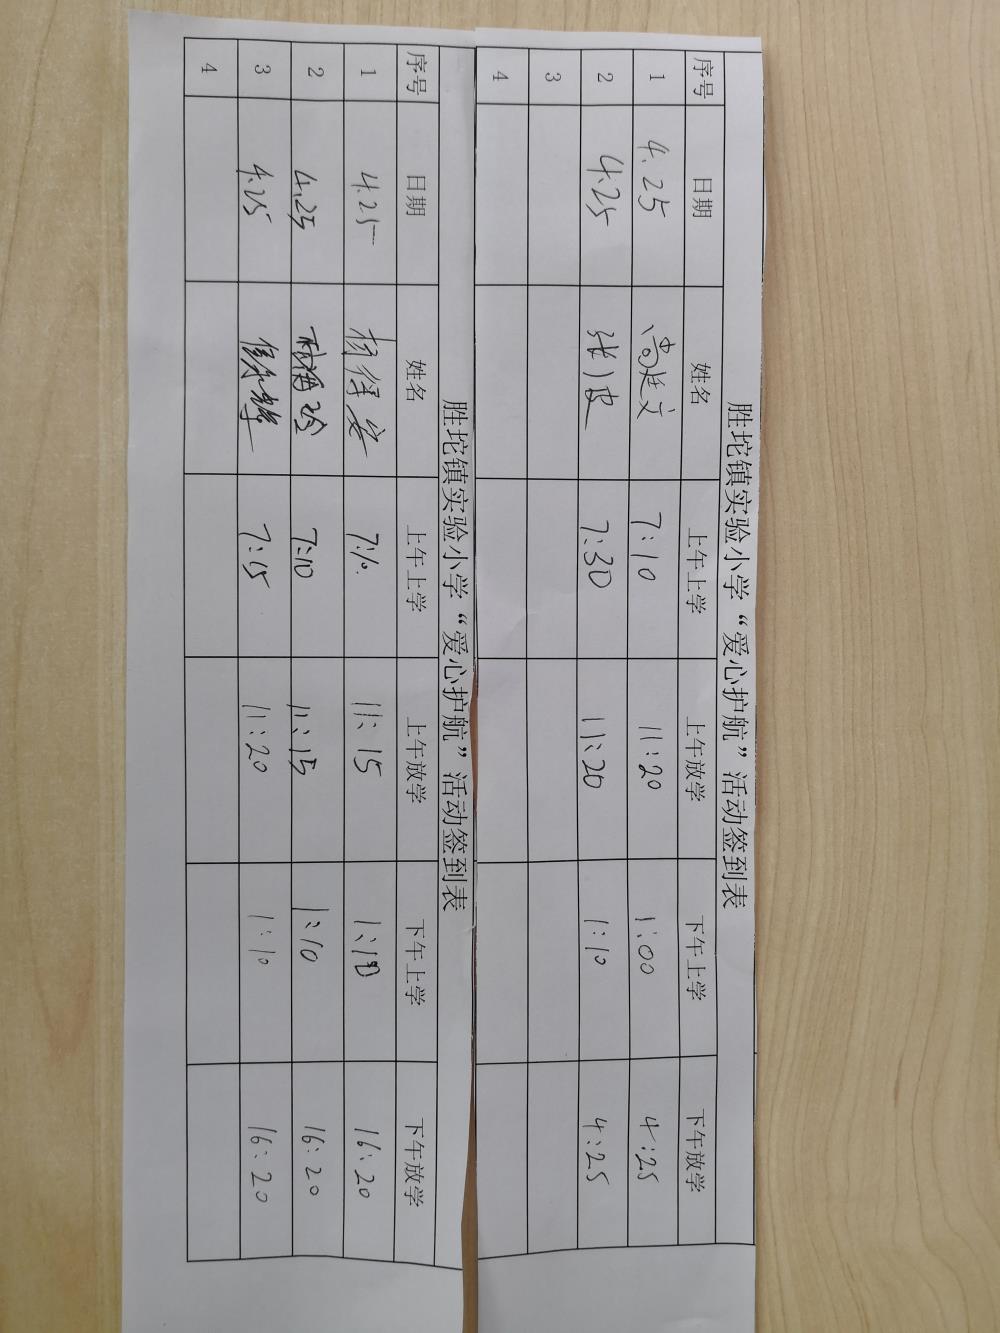 胜坨镇实验小学“爱心护航”活动签到表
序号 日期 姓名 上午上学 上午放学 下午上学 下午放学
1 4.25 尚廷文 7:10 11:20 1:00 4:25
2 4.25 张 7:30 11:20 1:10 4:25
3
4
胜坨镇实验小学“爱心护航”活动签到表
序号 日期 姓名 上午上学 上午放学 下午上学 下午放学
1 4.25 杨得 7:10. 11:15 1:10 16:20
2 4.25 7:10 11:15 1:10 16:20
3 4.25 7:15 11:20 1:10 16:20
4